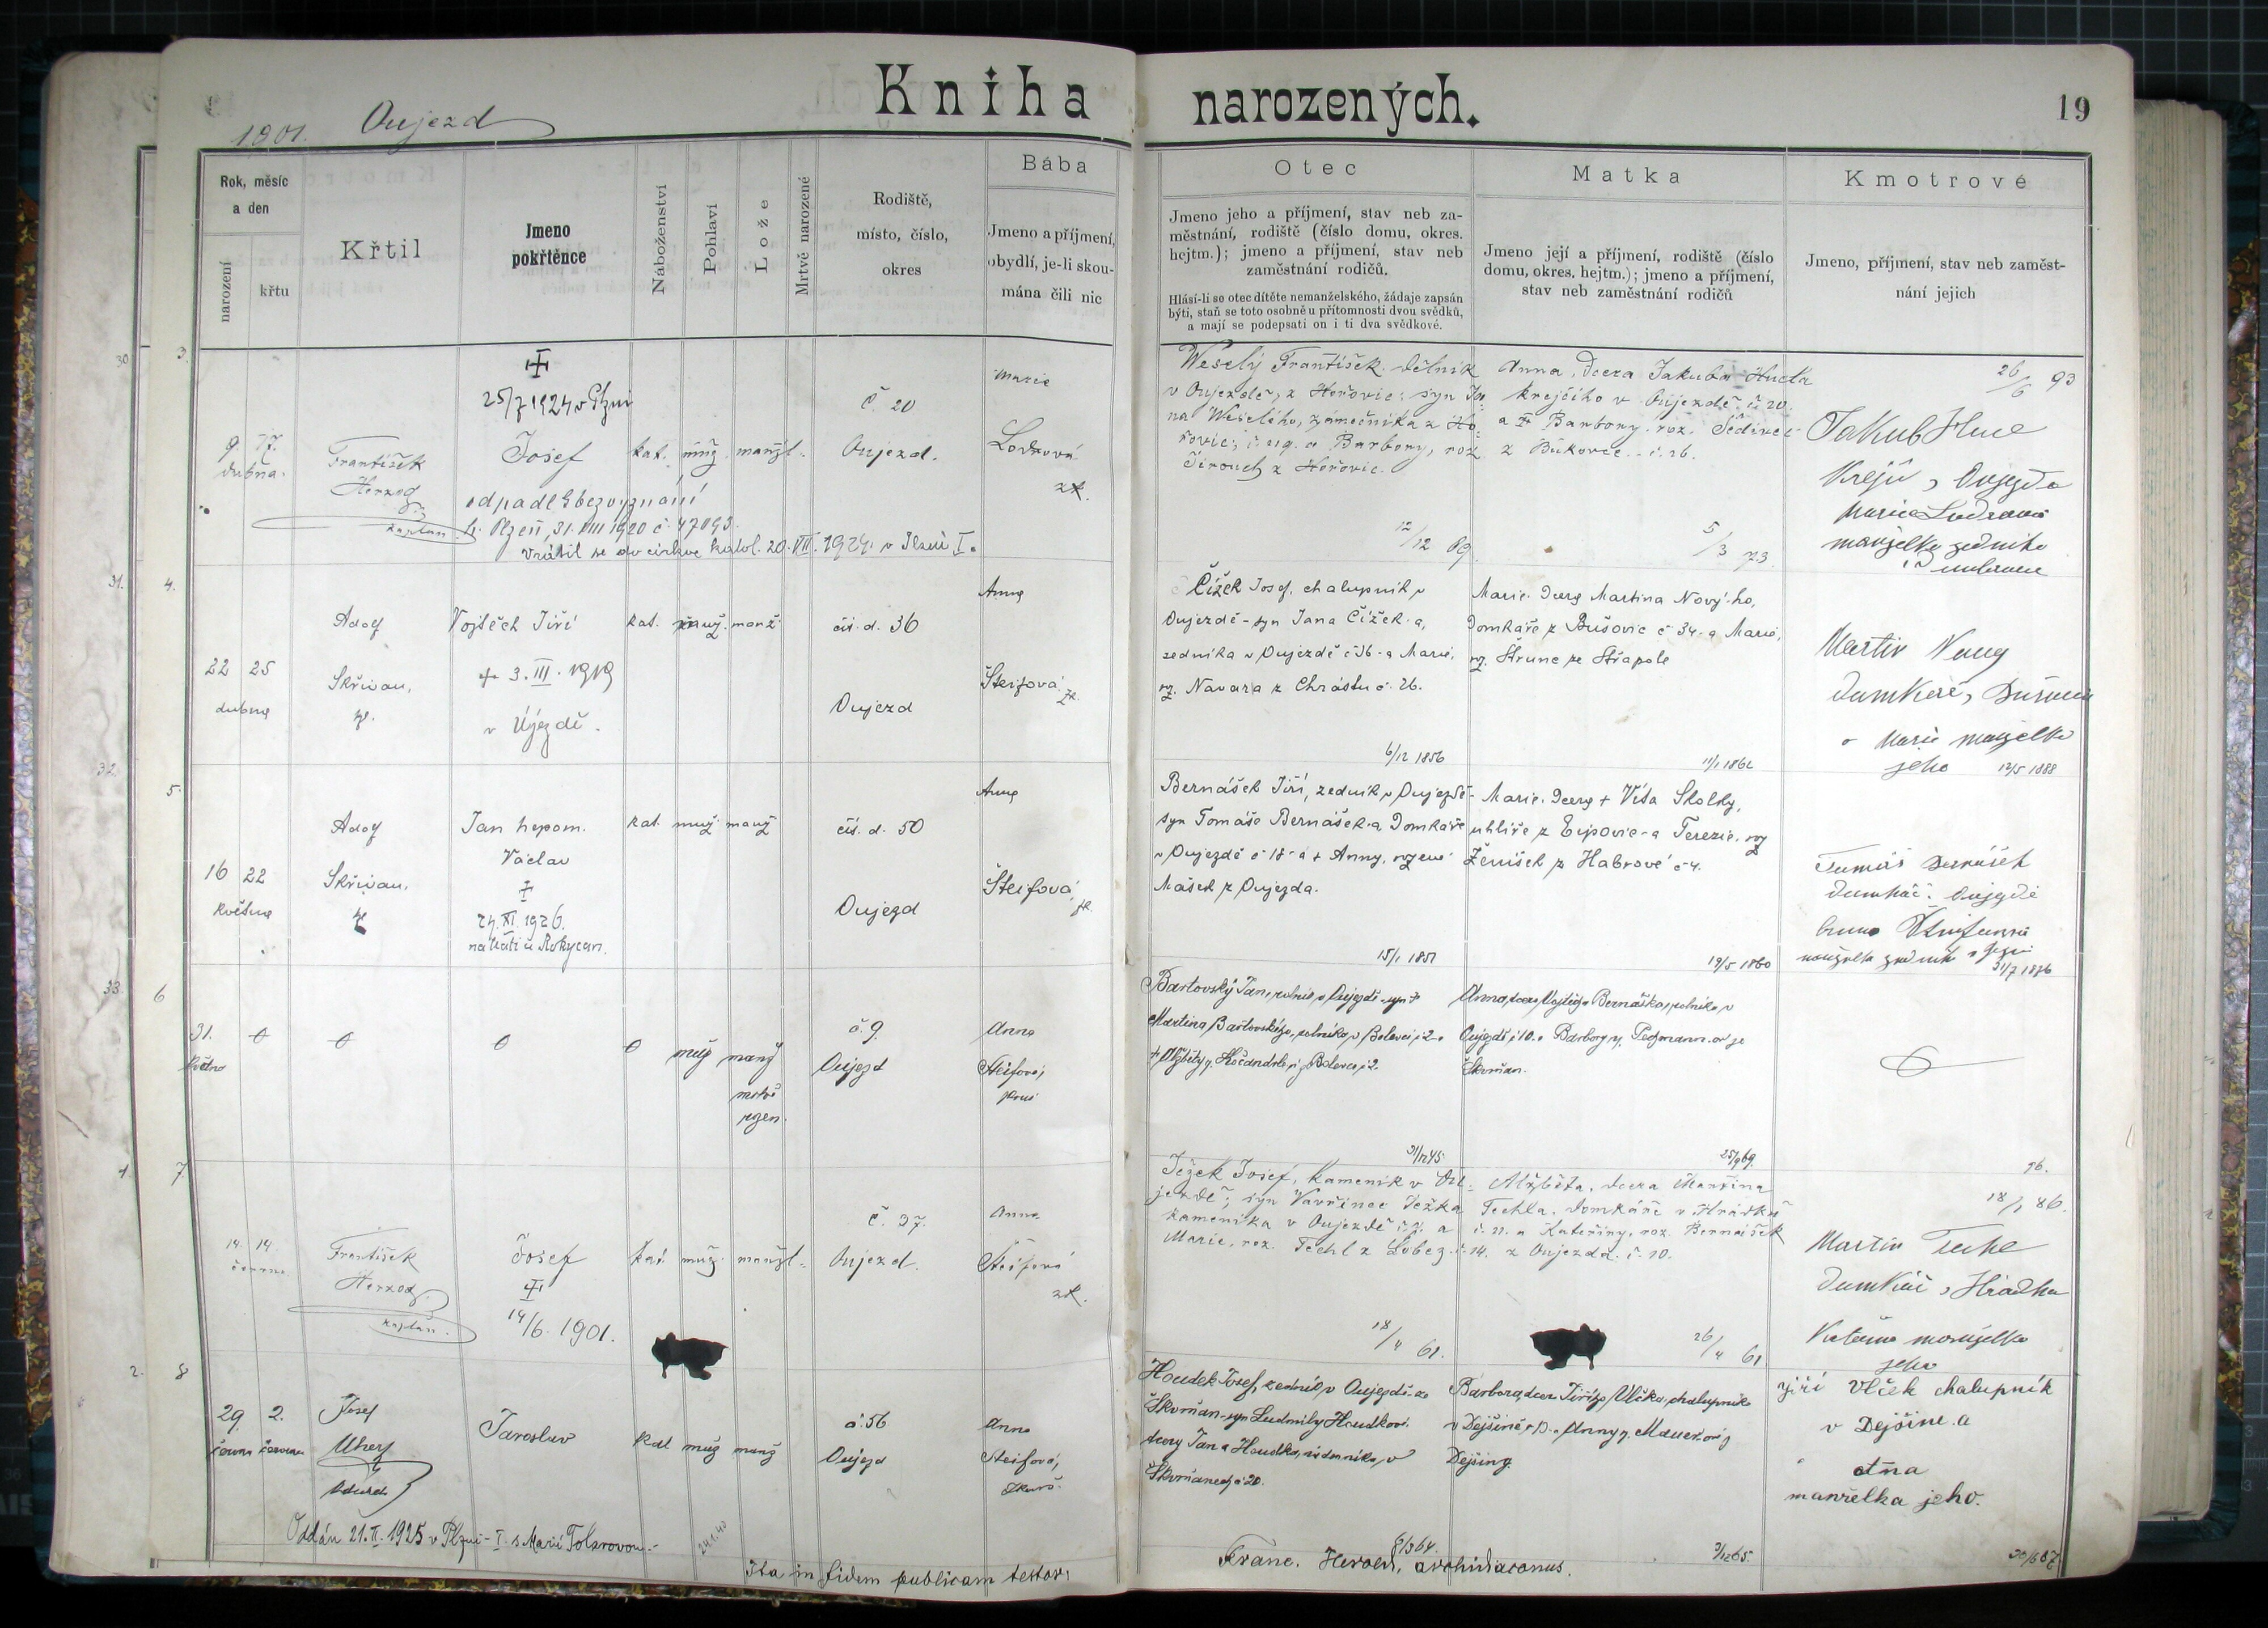 Kniha narozených.
19
1901. Oujezd
Rok, měsíc a den
narození
křtu
Křtil
Jmeno pokřtěnce
Náboženství
Pohlaví
Lože
Mrtvě narozené
Rodiště,
místo, číslo,
okres
Bába
Jmeno a příjmení,
obydlí, je-li skou-
mána čili nic
Otec
Jmeno jeho a příjmení, stav neb za-
městnání, rodiště (číslo domu, okres.
hejtm.); jmeno a příjmení, stav neb
zaměstnání rodičů.
Hlásí-li se otec dítěte nemanželského, žádaje zapsán
býti, staň se toto osobně u přítomnosti dvou svědků,
a mají se podepsati on i ti dva svědkové.
Matka
Jmeno její a příjmení, rodiště (číslo
domu, okres. hejtm.); jmeno a příjmení,
stav neb zaměstnání rodičů
Kmotrové
Jmeno, příjmení, stav neb zaměst-
nání jejich
30
3.
9. 17.
dubna.
František
Herzog
kaplan
25/7 1924 v Plzni
Josef
odpadl k bezvyznání
Plzeň, 31. VIII 1920 č. 47093.
Vrátil se do církve katol. 20. VII. 1924 v Plzni I.
kat. muž. manžl.
č. 20
Oujezd.
Marie
Lodrová
zk.
Weselý František dělník
v Oujezdě, z Hořovic; syn Ja-
na Weselého, zámečníka z Ho-
řovic, a Barbory, roz.
z Hořovic.
12/12 69
Anna, dcera Jakuba Hucla
krejčího v Oujezdě č. 20.
a Barbory, roz. Šedivec
z Bukovce č. 26.
5/3 73
26/6 93
Jakub Hucl
krejčí, Oujezda
Marie Lodrová
manželka zedníka
31.
4.
22 25
dubna
Adolf
Skřivan,
Vojtěch Jiří
3. III. 1919
v Újezdě.
kat. muž. manž.
čís. d. 36
Oujezd
Anna
Šteifová
zk.
Čížek Josef, chalupník v
Oujezdě - syn Jana Čížek-a,
zedníka v Oujezdě č 36 - a Marie,
roz. Navara z Chrástu č. 26.
6/12 1856
Marie, dcera Martina Nový-ho,
domkáře z Bušovic č 34 - a Marie,
roz. Štrunc ze Střapole
11/1 1862
Martin Nový
domkář, Bušovic
a Marie manželka
jeho 12/5 1888
32.
5.
16 22
května
Adolf
Skřivan,
Jan nepom.
Václav
24. XI. 1926.
na trati u Rokycan.
kat. muž. manž
čís. d. 50
Oujezd
Anna
Šteifová,
zk.
Bernášek Jiří, zedník v Oujezdě -
syn Tomáše Bernášek-a, domkáře
v Oujezdě č 18 - a + Anny, rozené
Mašek z Oujezda.
15/1 1851
Marie, dcera + Víta Skolky,
uhlíře z Ejpovic - a Terezie, roz
Ženíšek z Habrové č 4.
19/5 1860
Tomáš Bernášek
domkář Oujezdě
Anna Šteifová
manželka zedníka
31/7 1876
33.
6
31.
května
muž manž
mrtvě
rozen.
č. 9.
Oujezd
Anna
Šteifová,
Bartovský Jan, rolník v Oujezdě - syn +
Martina Bartovského, rolníka v Bolevci č 2 a
+ Alžběty z Bolevce č 2.
9/12 45
Anna, dcera Vojtěcha Bernáška, rolníka v
Oujezdě č 10. a Barbory roz. Pecmann-ové ze
Skvrňan.
25/9 69.
96.
1.
7.
14. 14.
června
František
Herzog
kaplan.
Josef
14/6. 1901.
kat. muž. manžl.
č. 37.
Oujezd.
Anna
Šteifová
zk.
Ježek Josef, kameník v Ou-
jezdě; syn Vavřince Ježka
kameníka v Oujezdě a
Marie, roz. Techl z Lobez. č. 14.
18/4 61.
Alžběta, dcera Martina
Techla, domkáře v Hrádku
č. 21. a Kateřiny, roz. Bernášek
z Oujezda č. 10.
26/4 61
18/1 86.
Martin Techl
domkář, Hrádku
Kateřina manželka
jeho
2.
8
29. 2.
června července
Josef
Uherz
Jaroslav
kat muž manž
č. 56
Oujezd
Anna
Šteifová,
zkouš.
Oddán 21. II. 1925 v Plzni - I. s Marií Tolarovou.
24.1.40
Houdek Josef, zedník v Oujezdě ze
Skvrňan - syn Ludmily Houdkové
dcery Jana Houdka, nádenníka v
Skvrňanech č 20.
6/3 64.
Barbora, dcera Jiřího Vlčka, chalupníka
v Dejšině a Anny roz. Mauer-ové z
Dejšiny.
9/12 65.
Jiří Vlček chalupník
v Dejšině a
Anna
manželka jeho.
30/6 87
Ita in fidem publicam testor:
Franc. Herold, archidiaconus.